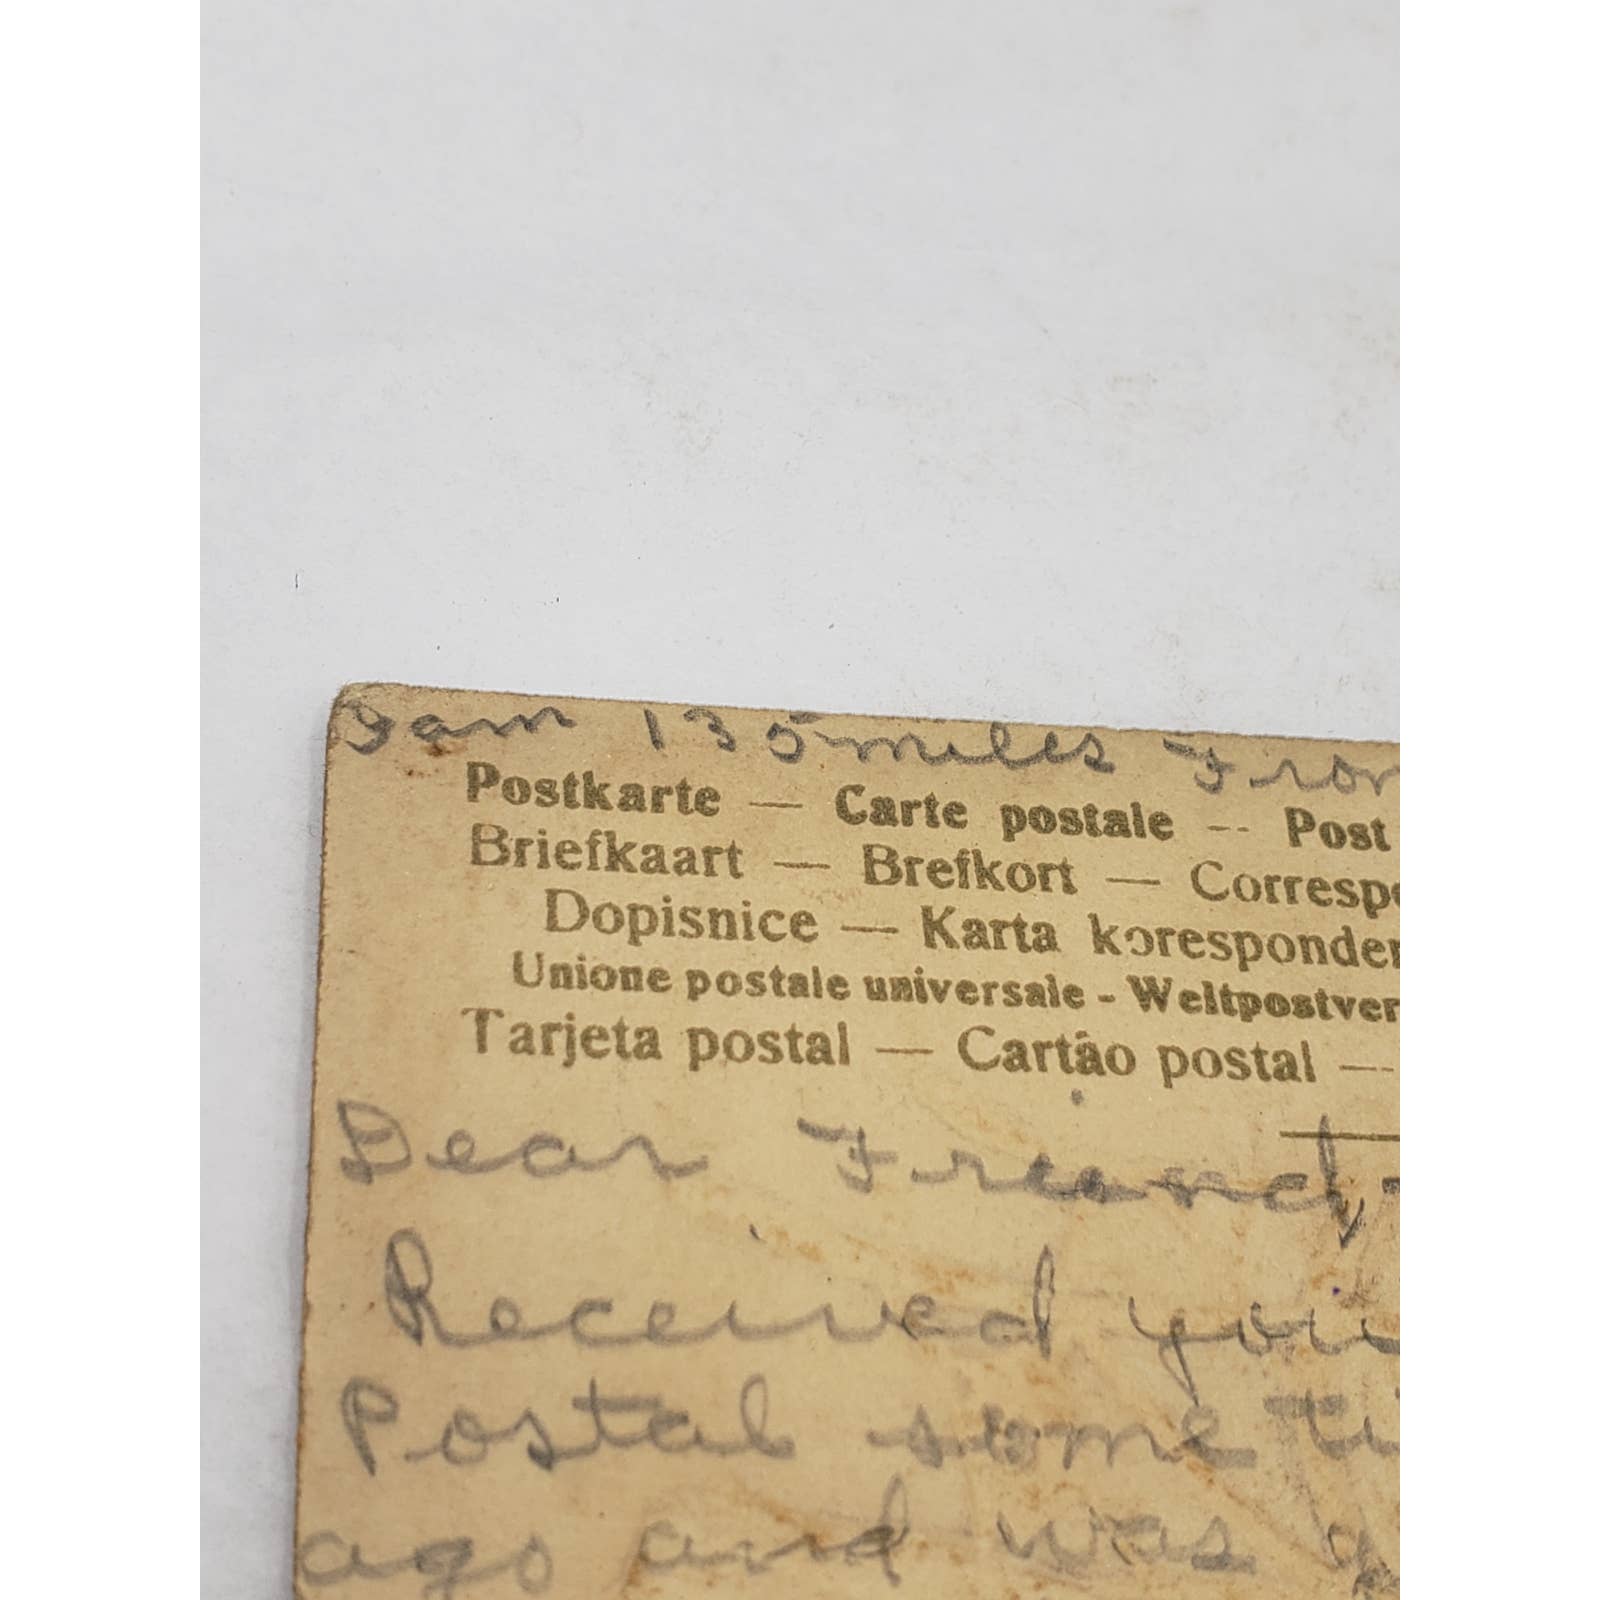 I am 135 miles From
Postkarte — Carte postale -- Post
Briefkaart — Brefkort — Correspo
Dopisnice — Karta koresponden
Unione postale universale - Weltpostver
Tarjeta postal — Cartão postal —
Dear Friend,-
Received your
Postal some ti
ago and was